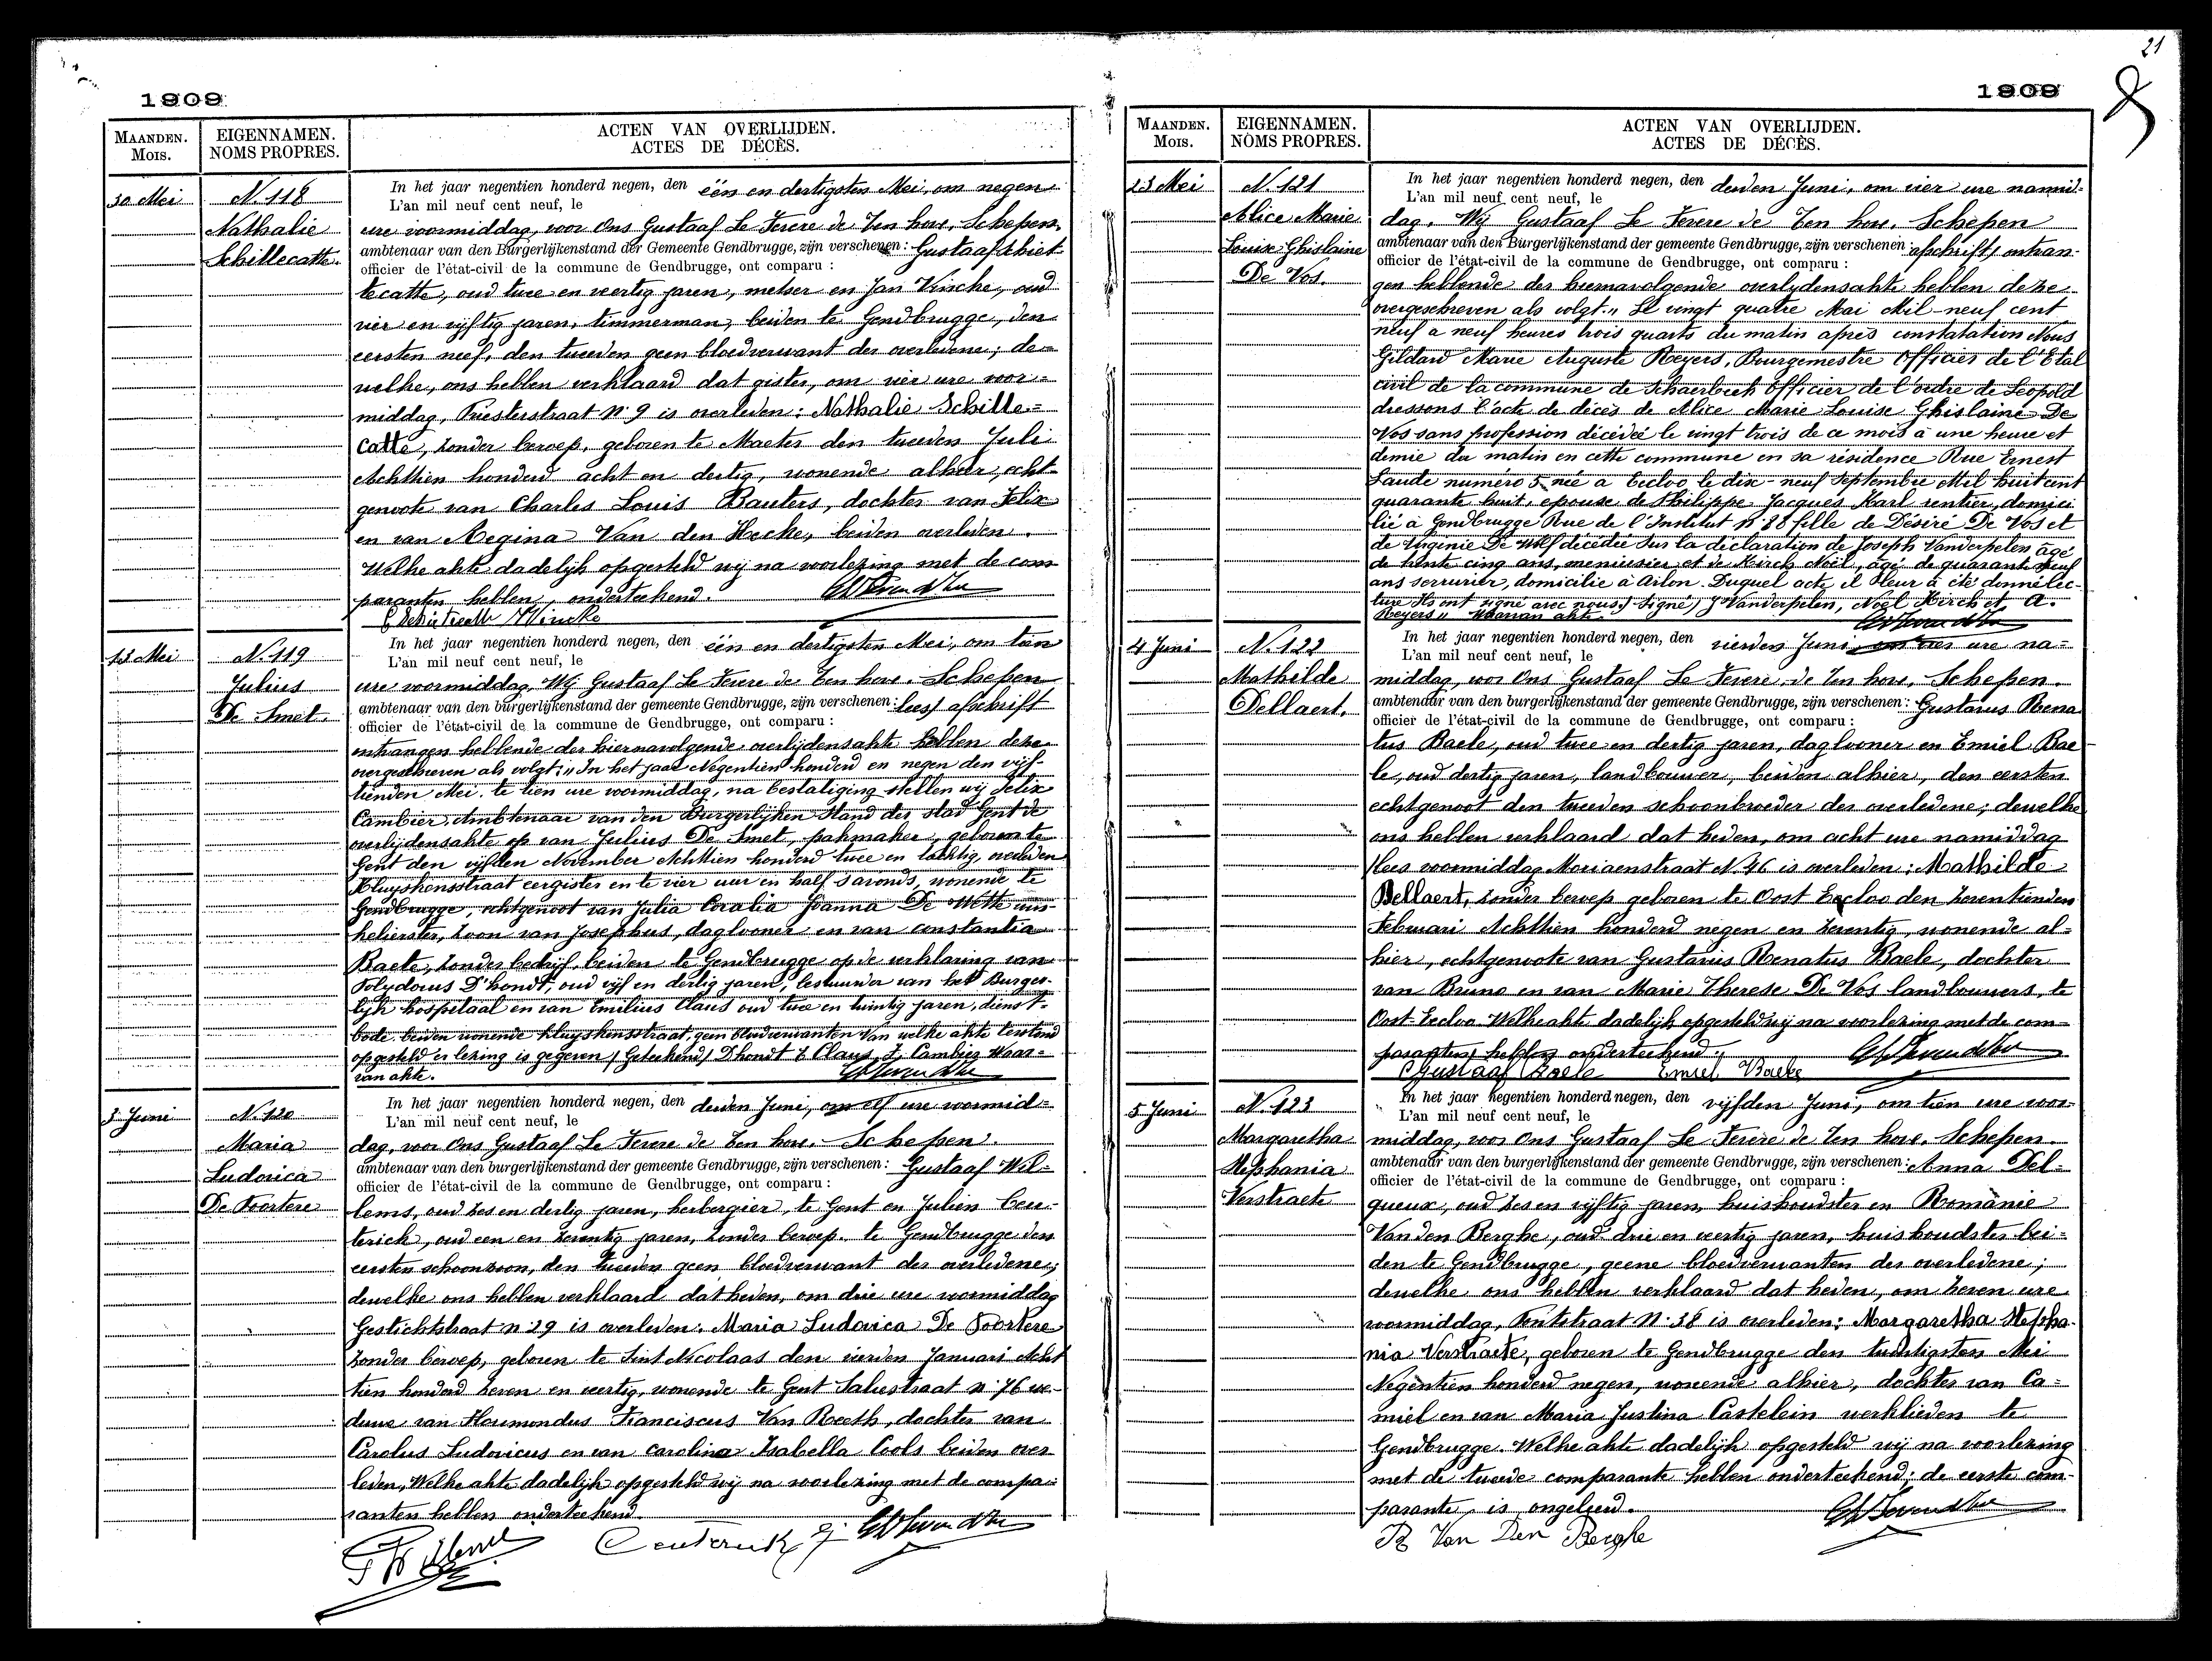 21
1909
MAANDEN.
MOIS.
EIGENNAMEN.
NOMS PROPRES.
ACTEN VAN OVERLIJDEN.
ACTES DE DÉCÈS.
30 Mei
N. 118
Nathalie
Schillecatte.
In het jaar negentien honderd negen, den één en dertigsten Mei, om negen
L'an mil neuf cent neuf, le
ure voormiddag, voor Ons Gustaaf Le Fevere de Ten hove, Schepen,
ambtenaar van den Burgerlijkenstand der Gemeente Gendbrugge, zijn verschenen: Gustaaf Schiet
officier de l'état-civil de la commune de Gendbrugge, ont comparu :
tecatte, oud twee en veertig jaren, metser en Jan Vincke, oud
vier en vijftig jaren, timmerman, beiden te Gendbrugge, den
eersten neef, den tweeden geen bloedverwant der overledene; de=
welke, ons hebben verklaard dat gister, om vier ure voor=
middag, Priesterstraat N. 9 is overleden: Nathalie Schille=
catte, zonder beroep, geboren te Maeter den tweeden Juli
Achttien honderd acht en dertig, wonende alhier, echt-
genoote van Charles Louis Bauters, dochter van Felix
en van Regina Van den Hecke, beiden overleden.
Welke akte dadelijk opgesteld wij na voorlezing met de com
paranten hebben, onderteekend.
J Vincke
13 Mei
N. 119
Julius
De Smet.
In het jaar negentien honderd negen, den één en dertigsten Mei, om tien
L'an mil neuf cent neuf, le
ure voormiddag, Wij Gustaaf Le Fevere de Ten hove. Schepen
ambtenaar van den burgerlijkenstand der gemeente Gendbrugge, zijn verschenen: lees/ afschrift
officier de l'état-civil de la commune de Gendbrugge, ont comparu :
ontvangen hebbende der hiernavolgende overlijdensakte hebben deze
overgeschreven als volgt: "In het jaar Negentien honderd en negen den vijf-
tienden Mei, te tien ure voormiddag, na bestatiging stellen wij Felix
Cambier Ambtenaar van den Burgerlijken Stand der stad Gent de
overlijdensakte op van Julius De Smet, pakmaker, geboren te
Gent den vijfden November Achttien honderd twee en tachtig, overleden
Kluyskensstraat eergister en te vier uur en half s'avonds, wonende te
Gendbrugge, echtgenoot van Julia Coralia Joanna De Wette win-
kelierster, zoon van Josephus, daglooner en van Constantia
Baete, zonder bedrijf, beiden te Gendbrugge op de verklaring van
Polydorus D'hondt, oud vijf en dertig jaren, bestuurder van het Burger-
lijk hospitaal en van Emilius Claus oud twee en twintig jaren, dienst-
bode, beiden wonende Kluyskensstraat, geen bloedverwanten Van welke akte terstond
opgesteld er lezing is gegeven / Geteekend/ Dhondt E Claus F. Cambier Waar=
van akte.
3 Juni
N. 120
Maria
Ludovica
De Poortere
In het jaar negentien honderd negen, den derden Juni, om elf ure voormid=
L'an mil neuf cent neuf, le
dag, voor Ons Gustaaf Le Fevere de Ten hove. Schepen.
ambtenaar van den burgerlijkenstand der gemeente Gendbrugge, zijn verschenen: Gustaaf Wil=
officier de l'état-civil de la commune de Gendbrugge, ont comparu :
lems, oud zes en dertig jaren, herbergier, te Gent en Julien Ceu-
terick, oud een en zeventig jaren, zonder beroep, te Gendbrugge den
eersten schoonzoon, den tweeden geen bloedverwant der overledene;
dewelke ons hebben verklaard dat heden, om drie ure voormiddag
Gestichtstraat n 29 is overleden: Maria Ludovica De Poortere
zonder beroep, geboren te Sint Nicolaas den vierden Januari Acht
tien honderd zeven en veertig, wonende te Gent n. 76 we-
duwe van Franciscus Van Reeth, dochter van
Carolus Ludovicus en van Carolina Isabella Cools beiden over
leden, Welke akte dadelijk opgesteld wij na voorlezing met de compa=
ranten hebben onderteekend.
1909
MAANDEN.
MOIS.
EIGENNAMEN.
NOMS PROPRES.
ACTEN VAN OVERLIJDEN.
ACTES DE DÉCÈS.
23 Mei
N. 121
Alice Marie
Louise Ghislaine
De Vos.
In het jaar negentien honderd negen, den derden Juni, om vier ure namid=
L'an mil neuf cent neuf, le
dag, Wij Gustaaf Le Fevere de Ten hove. Schepen
ambtenaar van den Burgerlijkenstand der gemeente Gendbrugge, zijn verschenen: afschrift/ ontvan-
officier de l'état-civil de la commune de Gendbrugge, ont comparu :
gen hebbende der hiernavolgende overlijdensakte hebben deze
overgeschreven als volgt: "Le vingt quatre Mai Mil-neuf cent
neuf a neuf heures trois quarts du matin après constatation Nous
Gildard Marie Auguste Reyers, Bourgemestre Officier de l'Etat
civil de la commune de Schaerbeek Officier de l'ordre de Léopold
dressons l'acte de décès de Alice Marie Louise Ghislaine De
Vos sans profession décédée le vingt trois de ce mois à une heure et
demie du matin en cette commune en sa résidence Rue Ernest
Laude numéro 5 née a Eecloo le dix-neuf Septembre Mil huit cent
quarante huit, epouse de Philippe Jacques Karl rentier, domici
lié à Gendbrugge Rue de l'Institut N. 88 fille de Désiré De Vos et
de Virginie De Wolf décédée Sur la déclaration de Joseph Vanderpelen, âgé
de trente cinq ans, menuisier et de Kirch Noël, âgé de quarante neuf
ans serrurier, domicilié à Arlon. Duquel acte il leur à été donné lec-
ture Ils ont signé avec nous./ Signé/ J Vanderpelen, Noël Kirch et A.
Reyers" Waarvan akte.
4 Juni
N. 122
Mathilde
Dellaert.
In het jaar negentien honderd negen, den vierden Juni, ure na=
L'an mil neuf cent neuf, le
middag, voor Ons Gustaaf Le Fevere de Ten hove, Schepen.
ambtenaar van den burgerlijkenstand der gemeente Gendbrugge, zijn verschenen: Gustavus Rena
officier de l'état-civil de la commune de Gendbrugge, ont comparu :
tus Baele, oud twee en dertig jaren, daglooner en Emiel Bae
le, oud dertig jaren, landbouwer, beiden alhier, den eersten
echtgenoot den tweeden schoonbroeder der overledene; dewelke
ons hebben verklaard dat heden, om acht ure namiddag
/lees voormiddag Moriaenstraat N. 46 is overleden: Mathilde
Dellaert, zonder beroep geboren te Oost Eecloo den zeventienden
Februari Achttien honderd negen en zeventig, wonende al=
hier, echtgenoote van Gustavus Renatus Baele, dochter
van Bruno en van Marie Therese De Vos landbouwers, te
Oost-Eecloo. Welke akte dadelijk opgesteld wij na voorlezing met de com=
paranten hebben onderteekend.
Gustaaf Baele Emiel Baele
5 Juni
N. 123
Margaretha
Stephania
Verstraete
In het jaar negentien honderd negen, den vijfden Juni, om tien ure voor=
L'an mil neuf cent neuf, le
middag, voor Ons Gustaaf Le Fevere de Ten hove. Schepen.
ambtenaar van den burgerlijkenstand der gemeente Gendbrugge, zijn verschenen: Anna Del=
officier de l'état-civil de la commune de Gendbrugge, ont comparu :
queux, oud zes en vijftig jaren, huishoudster en Romanie
Van den Berghe, oud drie en veertig jaren, huishoudster bei=
den te Gendbrugge, geene bloedverwanten der overledene;
dewelke ons hebben verklaard dat heden, om zeven ure
voormiddag, N. 38 is overleden: Margaretha Stepha-
nia Verstraete, geboren te Gendbrugge den twintigsten Mei
Negentien honderd negen, wonende alhier, dochter van Ca=
miel en van Maria Justina Castelein werklieden te
Gendbrugge. Welke akte dadelijk opgesteld wij na voorlezing
met de tweede comparante hebben onderteekend; de eerste com-
parante, is ongeleerd.
R Van Den Berghe